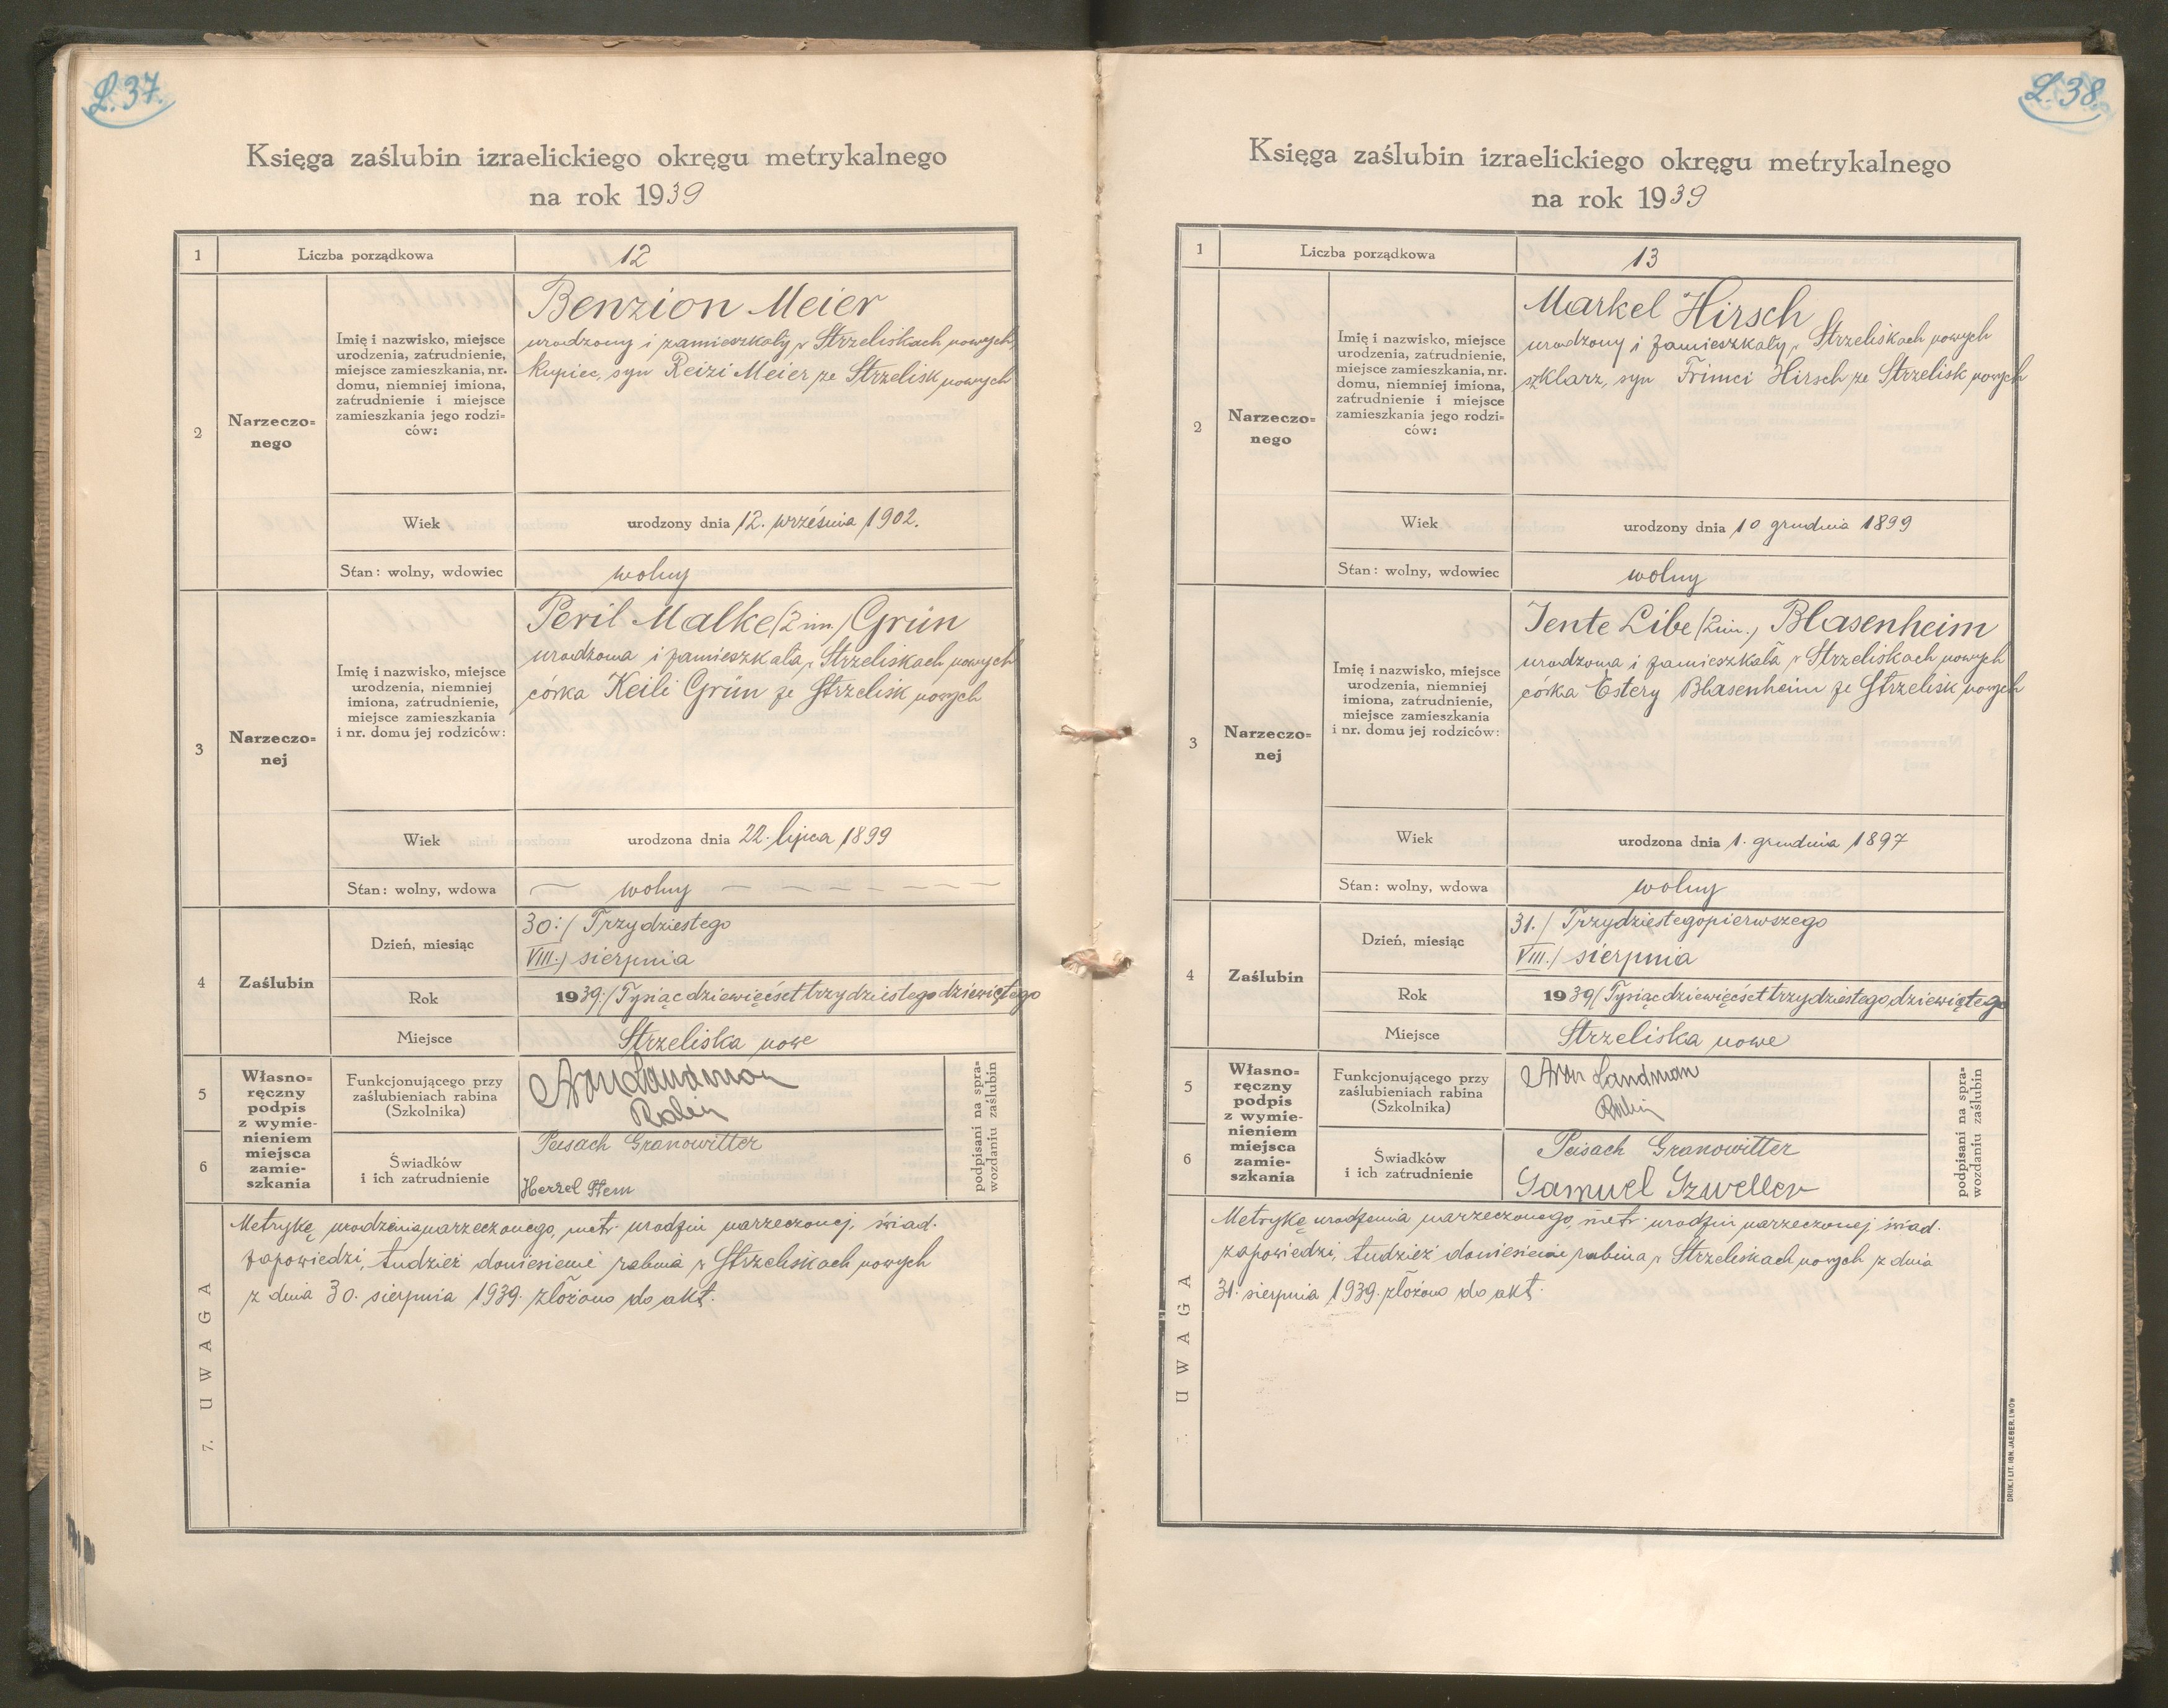 L. 37.
Księga zaślubin izraelickiego okręgu metrykalnego
na rok 1939
1
Liczba porządkowa
12
2
Narzeczo=
nego
Imię i nazwisko, miejsce
urodzenia, zatrudnienie,
miejsce zamieszkania, nr.
domu, niemniej imiona,
zatrudnienie i miejsce
zamieszkania jego rodzi=
ców:
Benzion Meier
urodzony i zamieszkały w Strzeliskach nowych,
kupiec, syn Reizi Meier ze Strzelisk nowych
Wiek
urodzony dnia 12. września 1902.
Stan: wolny, wdowiec
wolny
3
Narzeczo=
nej
Imię i nazwisko, miejsce
urodzenia, niemniej
imiona, zatrudnienie,
miejsce zamieszkania
i nr. domu jej rodziców:
Peril Malke /2 im./ Grün
urodzona i zamieszkała w Strzeliskach nowych
córka Keili Grün ze Strzelisk nowych
Wiek
urodzona dnia 22. lipca 1899
Stan: wolny, wdowa
wolny
4
Zaślubin
Dzień, miesiąc
30./ Trzydziestego
VIII./ sierpnia
Rok
1939./ Tysiącdziewięćsettrzydziestegodziewiątego
Miejsce
Strzeliska nowe
5
6
Własno=
ręczny
podpis
z wymie-
nieniem
miejsca
zamie-
szkania
Funkcjonującego przy
zaślubieniach rabina
(Szkolnika)
Aron Landman
Rabin
Świadków
i ich zatrudnienie
Peisach Granowitter
Herzel Stern
podpisani na spra=
wozdaniu zaślubin
7. UWAGA
Metrykę urodzenia narzeczonego, metr. urodzin narzeczonej, świad.
zapowiedzi, tudzież doniesienie rabina w Strzeliskach nowych
z dnia 30. sierpnia 1939. złożono do akt.
L. 38.
Księga zaślubin izraelickiego okręgu metrykalnego
na rok 1939
1
Liczba porządkowa
13
2
Narzeczo=
nego
Imię i nazwisko, miejsce
urodzenia, zatrudnienie,
miejsce zamieszkania, nr.
domu, niemniej imiona,
zatrudnienie i miejsce
zamieszkania jego rodzi=
ców:
Markel Hirsch
urodzony i zamieszkały w Strzeliskach nowych
szklarz, syn Frimci Hirsch ze Strzelisk nowych
Wiek
urodzony dnia 10 grudnia 1899
Stan: wolny, wdowiec
wolny
3
Narzeczo=
nej
Imię i nazwisko, miejsce
urodzenia, niemniej
imiona, zatrudnienie,
miejsce zamieszkania
i nr. domu jej rodziców:
Jente Libe /2 im./ Blasenheim
urodzona i zamieszkała w Strzeliskach nowych
córka Estery Blasenheim ze Strzelisk nowych
Wiek
urodzona dnia 1. grudnia 1897
Stan: wolny, wdowa
wolny
4
Zaślubin
Dzień, miesiąc
31./ Trzydziestegopierwszego
VIII./ sierpnia
Rok
1939/ Tysiącdziewięćsettrzydziestegodziewiątego
Miejsce
Strzeliska nowe
5
6
Własno=
ręczny
podpis
z wymie-
nieniem
miejsca
zamie-
szkania
Funkcjonującego przy
zaślubieniach rabina
(Szkolnika)
Aron Landman
Rabin
Świadków
i ich zatrudnienie
Peisach Granowitter
Samuel Szweller
podpisani na spra=
wozdaniu zaślubin
UWAGA
Metrykę urodzenia narzeczonego, metr. urodzin narzeczonej świad.
zapowiedzi, tudzież doniesienie rabina w Strzeliskach nowych z dnia
31. sierpnia 1939. złożono do akt.
DRUK. I LIT. IGN. JAEGER. LWÓW